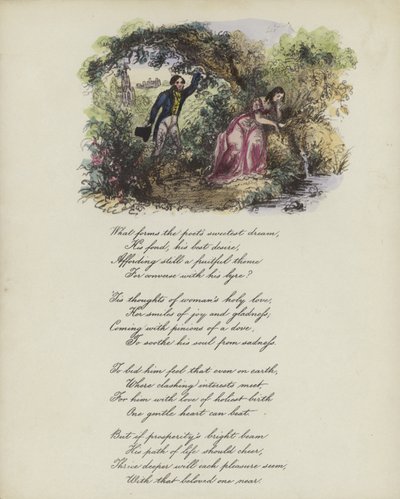 What forms the poet's sweetest dream,
His fond, his best desire,
Affording still a fruitful theme
For converse with his lyre?
Tis thoughts of woman's holy love,
Her smiles of joy and gladness,
Coming with pinions of a dove.
To soothe his soul from sadness.
To bid him feel that even on earth,
Where clashing interests meet
For him with love of holiest birth
One gentle heart can beat.
But if prosperity's bright beam
His path of life should cheer,
Thrice deeper will each pleasure seem,
With that beloved one near.